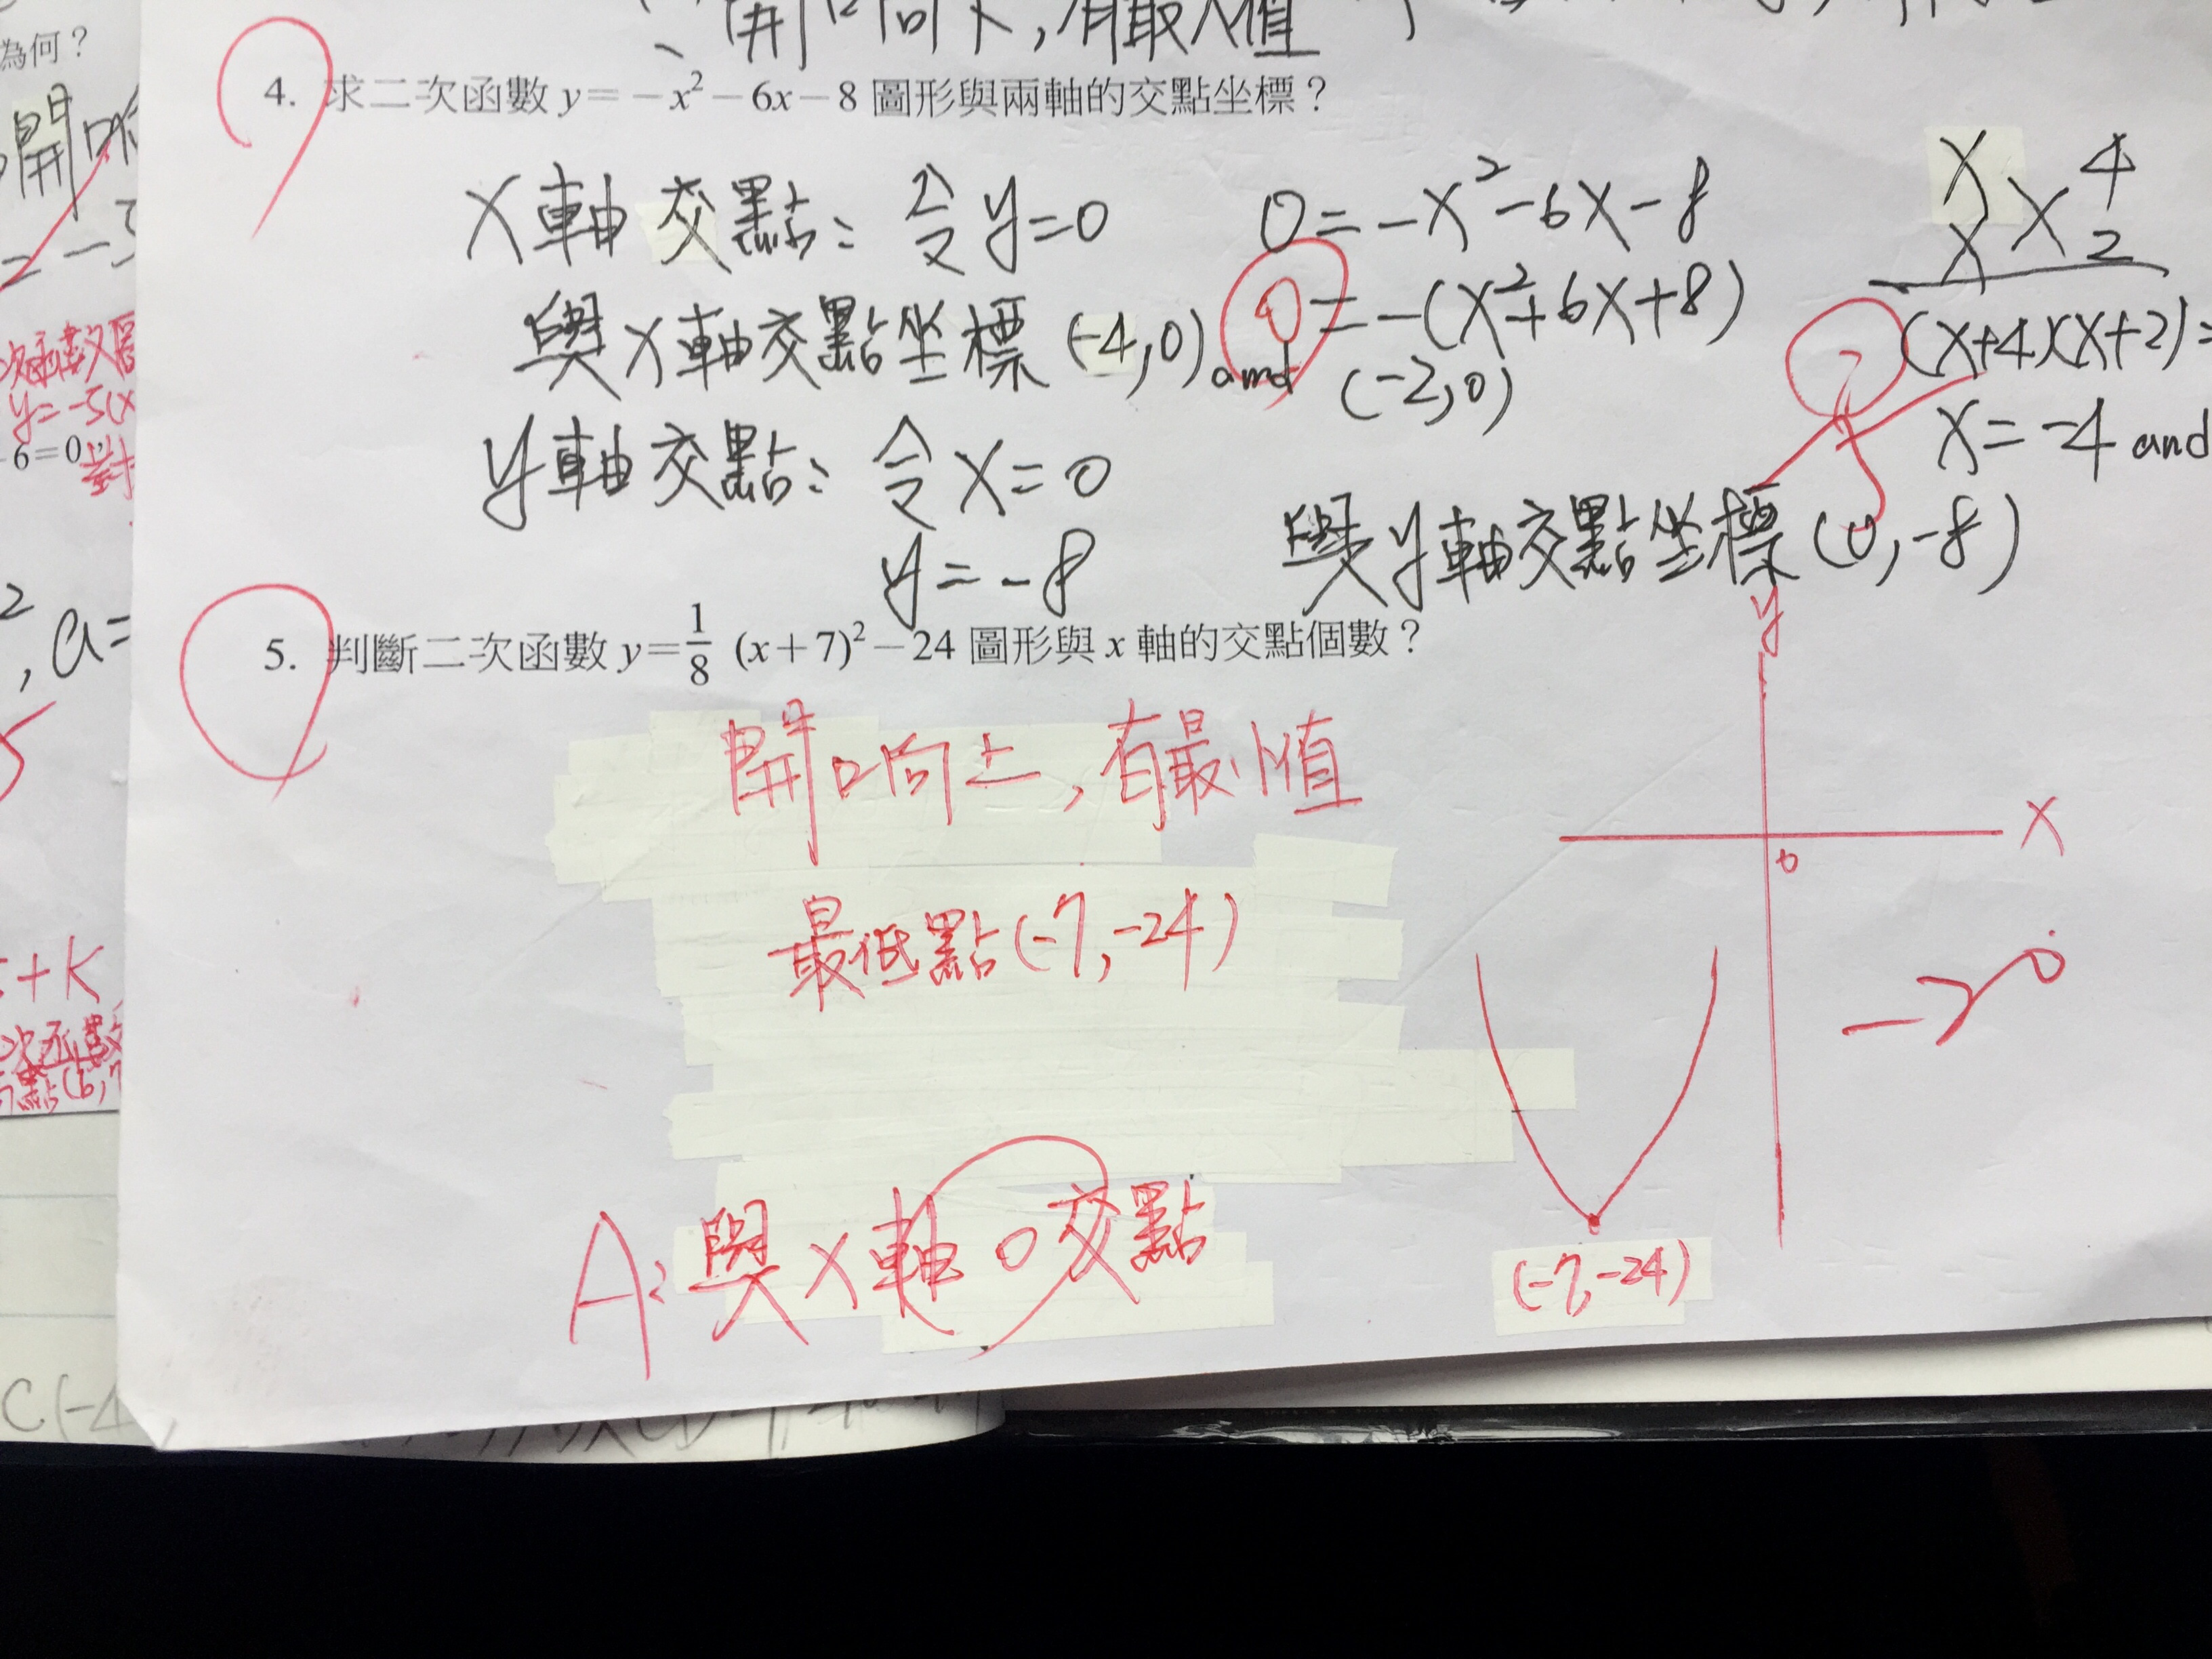 開口向下,有最大值
為何?
4. 求二次函數 y=-x²-6x-8 圖形與兩軸的交點坐標?
X軸交點: 令y=0
0=-X²-6X-8
0=-(X²+6X+8)
X 4
X 2
(X+4)(X+2)=
X=-4 and
與X軸交點坐標(-4,0) and (-2,0)
y軸交點: 令X=0
y=-8
與y軸交點坐標(0,-8)
5. 判斷二次函數 y=1/8 (x+7)²-24 圖形與 x 軸的交點個數?
開口向上,有最小值
最低點(-7,-24)
A:與X軸0交點
y
X
0
(-7,-24)
y=-5(x
-6=0,
, a=
+K
C(-4,